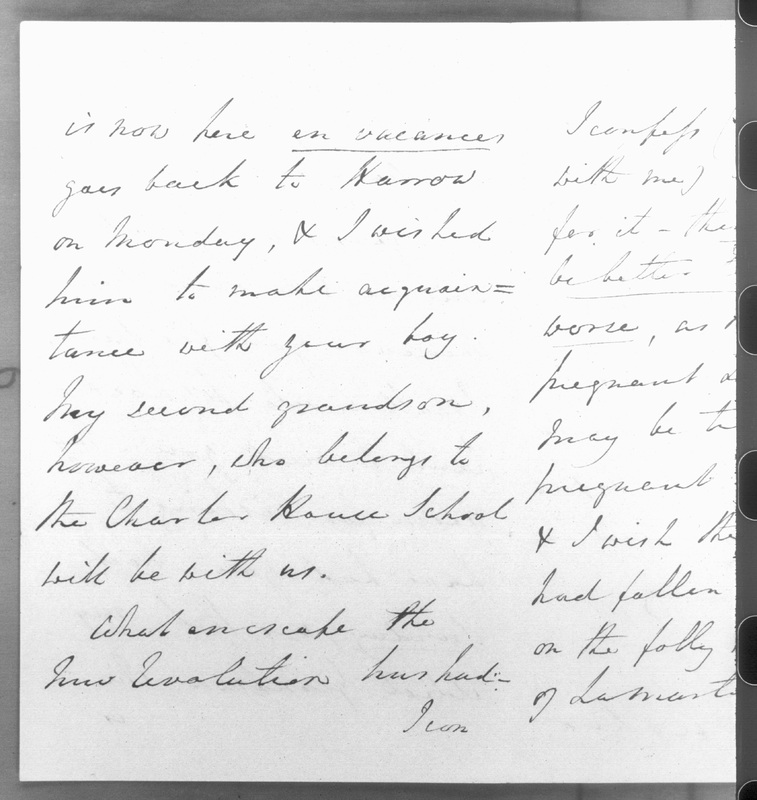 is now here en vacances
goes back to Harrow
on Monday, & I wished
him to make acquain=
tance with your boy.
My second grandson,
however, who belongs to
the Charter House School
will be with us.
What an escape the
new Revolution has had-
I con
I confess
with me)
for it - the
be better
worse, as
pregnant
may be
pregnant
& I wish the
had fallen
on the folly
of Lamart